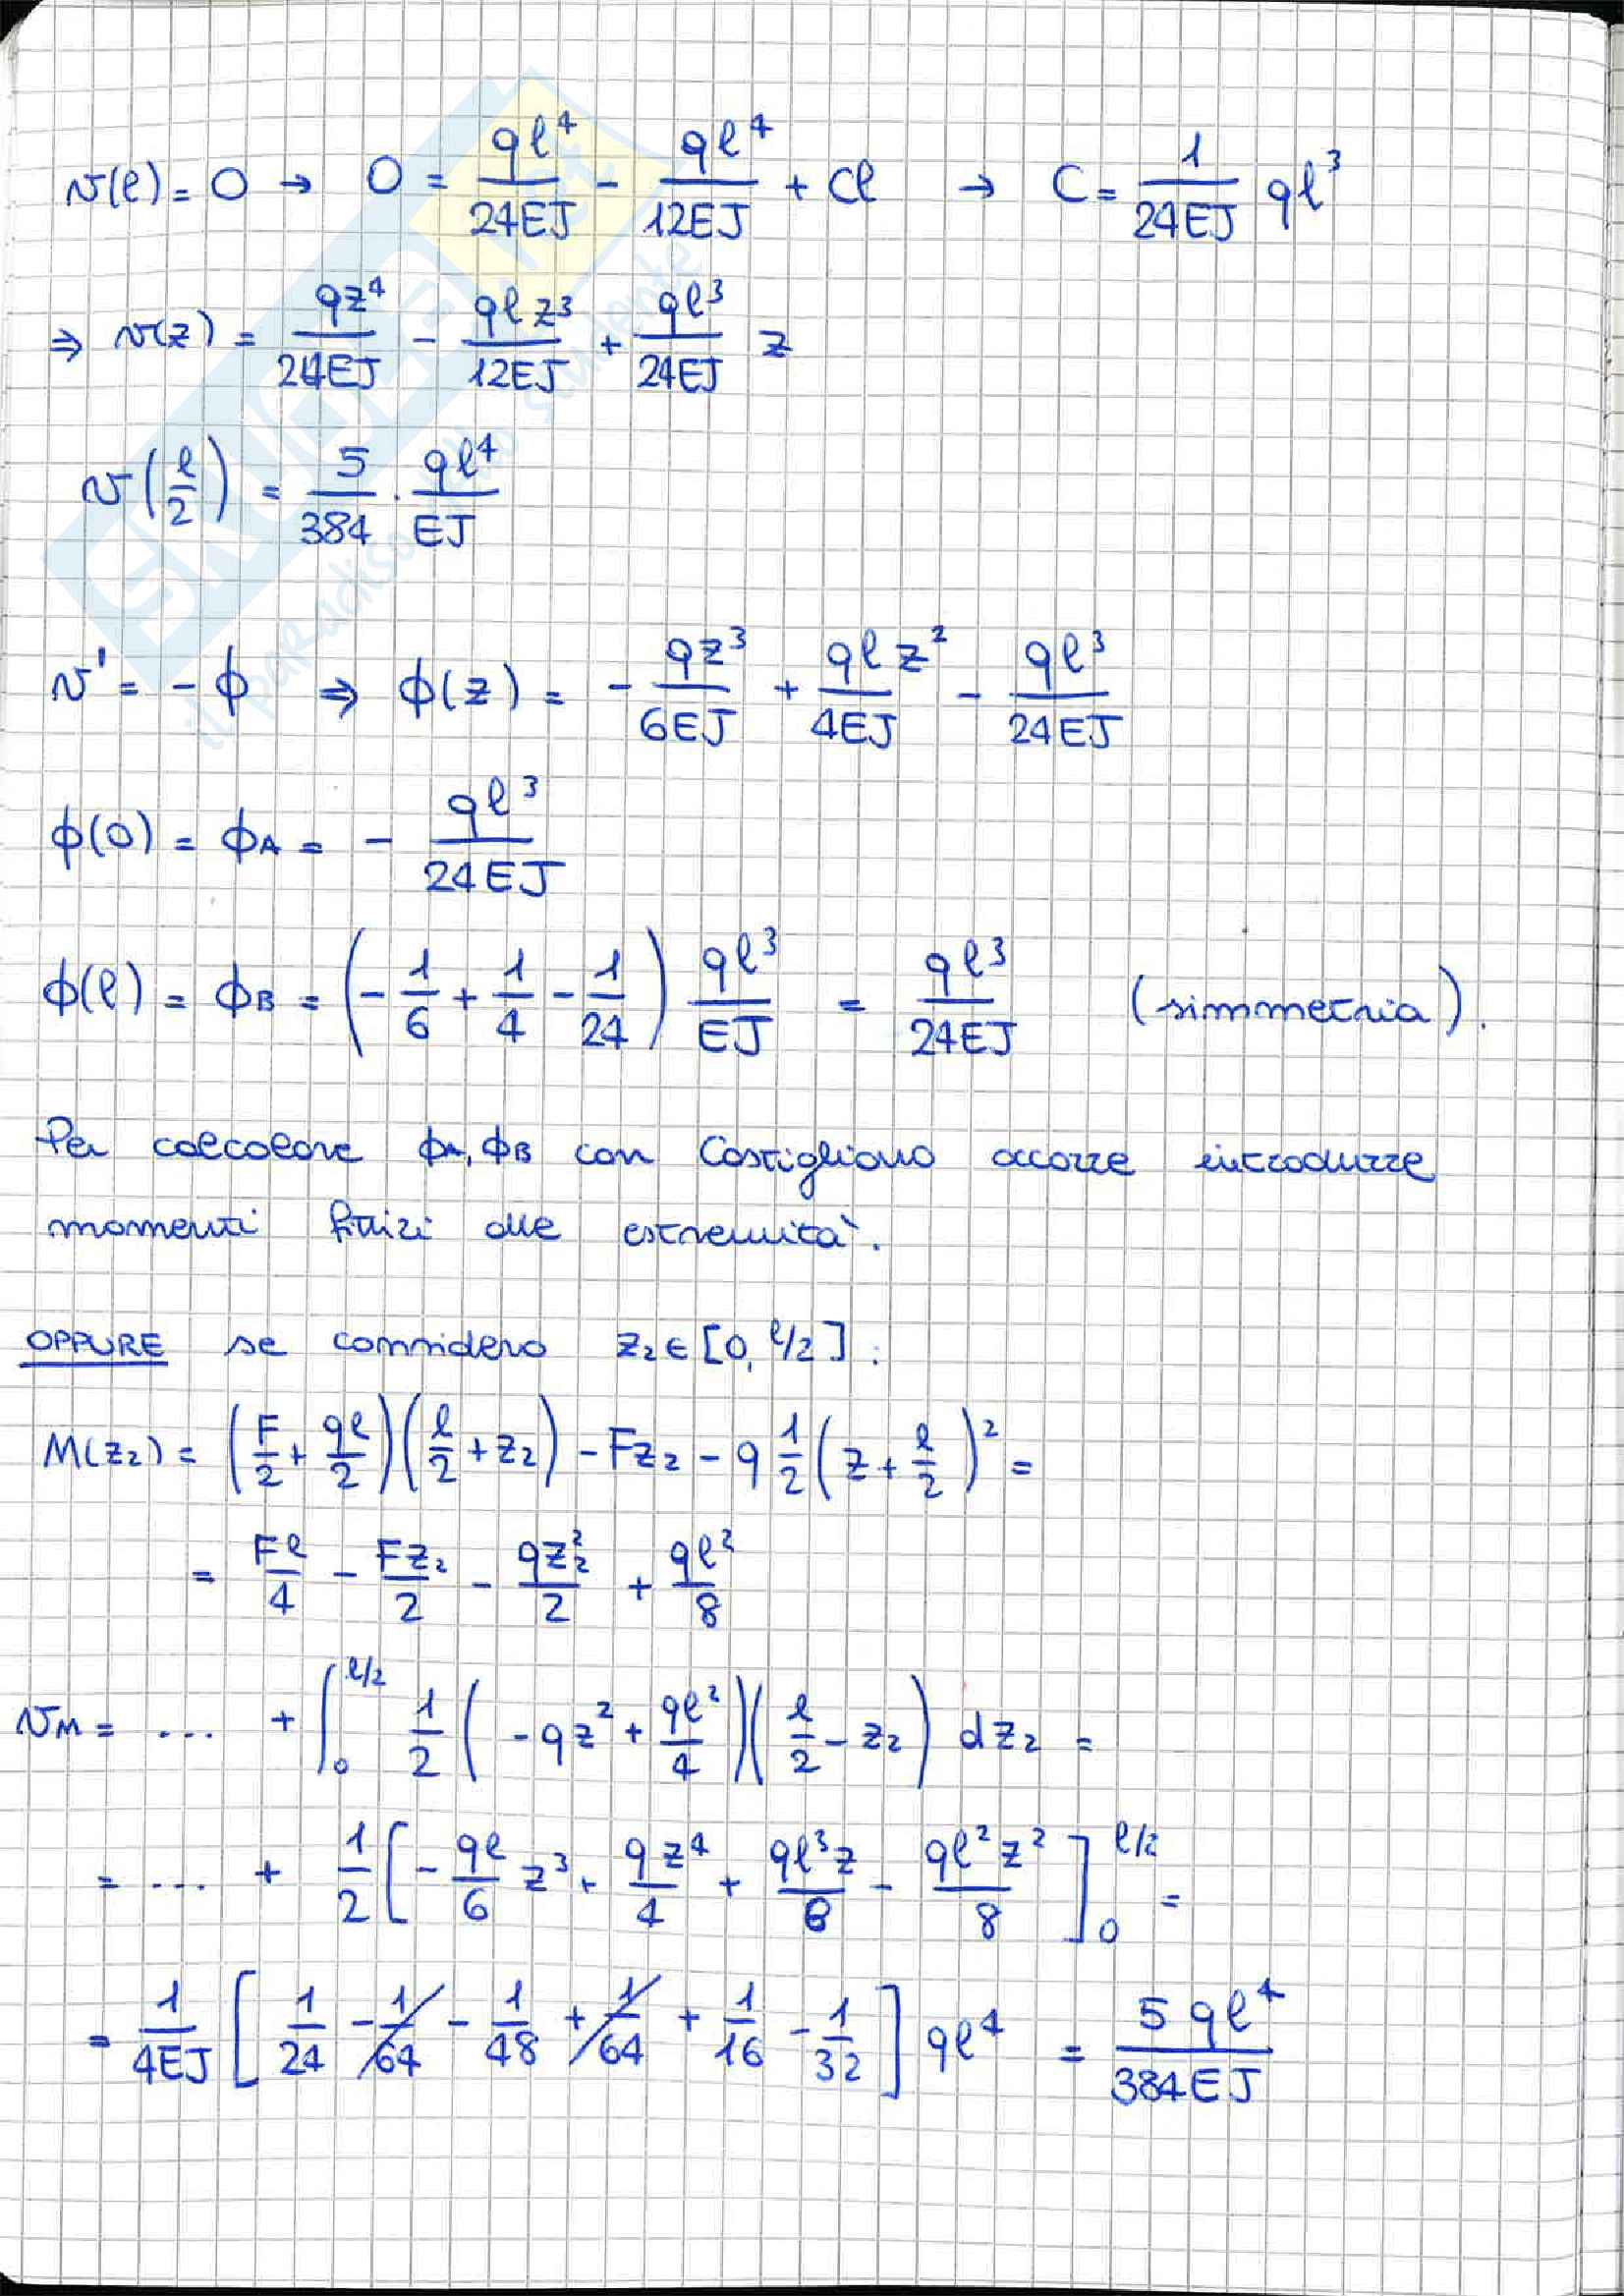 v(l) = 0 → 0 = ql⁴/24EJ - ql⁴/12EJ + Cl → C = 1/24EJ ql³
⇒ v(z) = qz⁴/24EJ - qlz³/12EJ + ql³/24EJ z
v(l/2) = 5/384 · ql⁴/EJ
v' = -ϕ ⇒ ϕ(z) = - qz³/6EJ + qlz²/4EJ - ql³/24EJ
ϕ(0) = ϕA = - ql³/24EJ
ϕ(l) = ϕB = (- 1/6 + 1/4 - 1/24) ql³/EJ = ql³/24EJ (simmetria).
Per calcolare ϕA, ϕB con Castigliano occorre introdurre
momenti fittizi alle estremità.
OPPURE se considero z₂ ∈ [0, l/2] :
M(z₂) = (F/2 + ql/2)(l/2 + z₂) - Fz₂ - q 1/2 (z + l/2)² =
= Fl/4 - Fz₂/2 - qz₂²/2 + ql²/8
vM = ... + ∫₀^l/2 1/2 (-qz² + ql²/4)(l/2 - z₂) dz₂ =
= ... + 1/2 [- ql/6 z³ + qz⁴/4 + ql³z/8 - ql²z²/8]₀^l/2 =
= 1/4EJ [1/24 - 1/64 - 1/48 + 1/64 + 1/16 - 1/32] ql⁴ = 5ql⁴/384EJ
SKUOLA.net
il paradiso dello studente